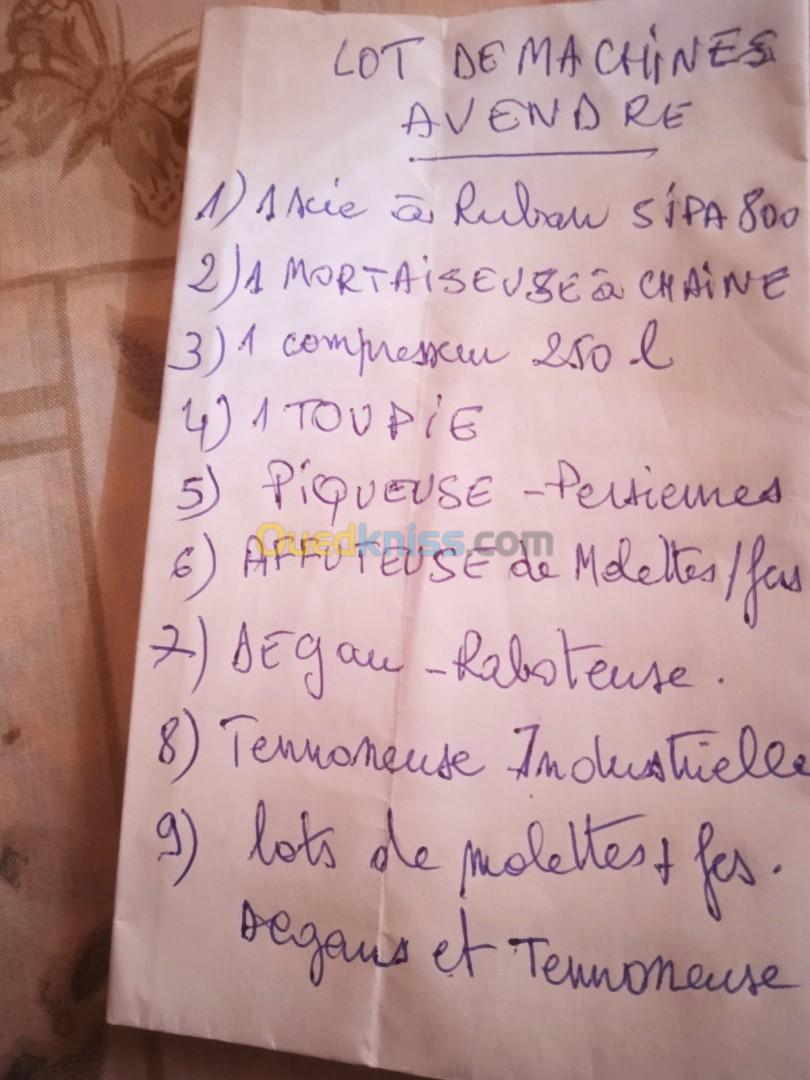 LOT DE MACHINES
A VENDRE
1) 1 Scie à Ruban SIPA 800
2) 1 MORTAISEUSE à CHAINE
3) 1 compresseur 250 l
4) 1 TOUPIE
5) PIQUEUSE - Persiennes
6) AFFUTEUSE de Molettes / fers
Ouedkniss.com
7) DEgau - Raboteuse.
8) Tennoneuse Industrielle
9) lots de molettes + fers.
Degaus et Tennoneuse